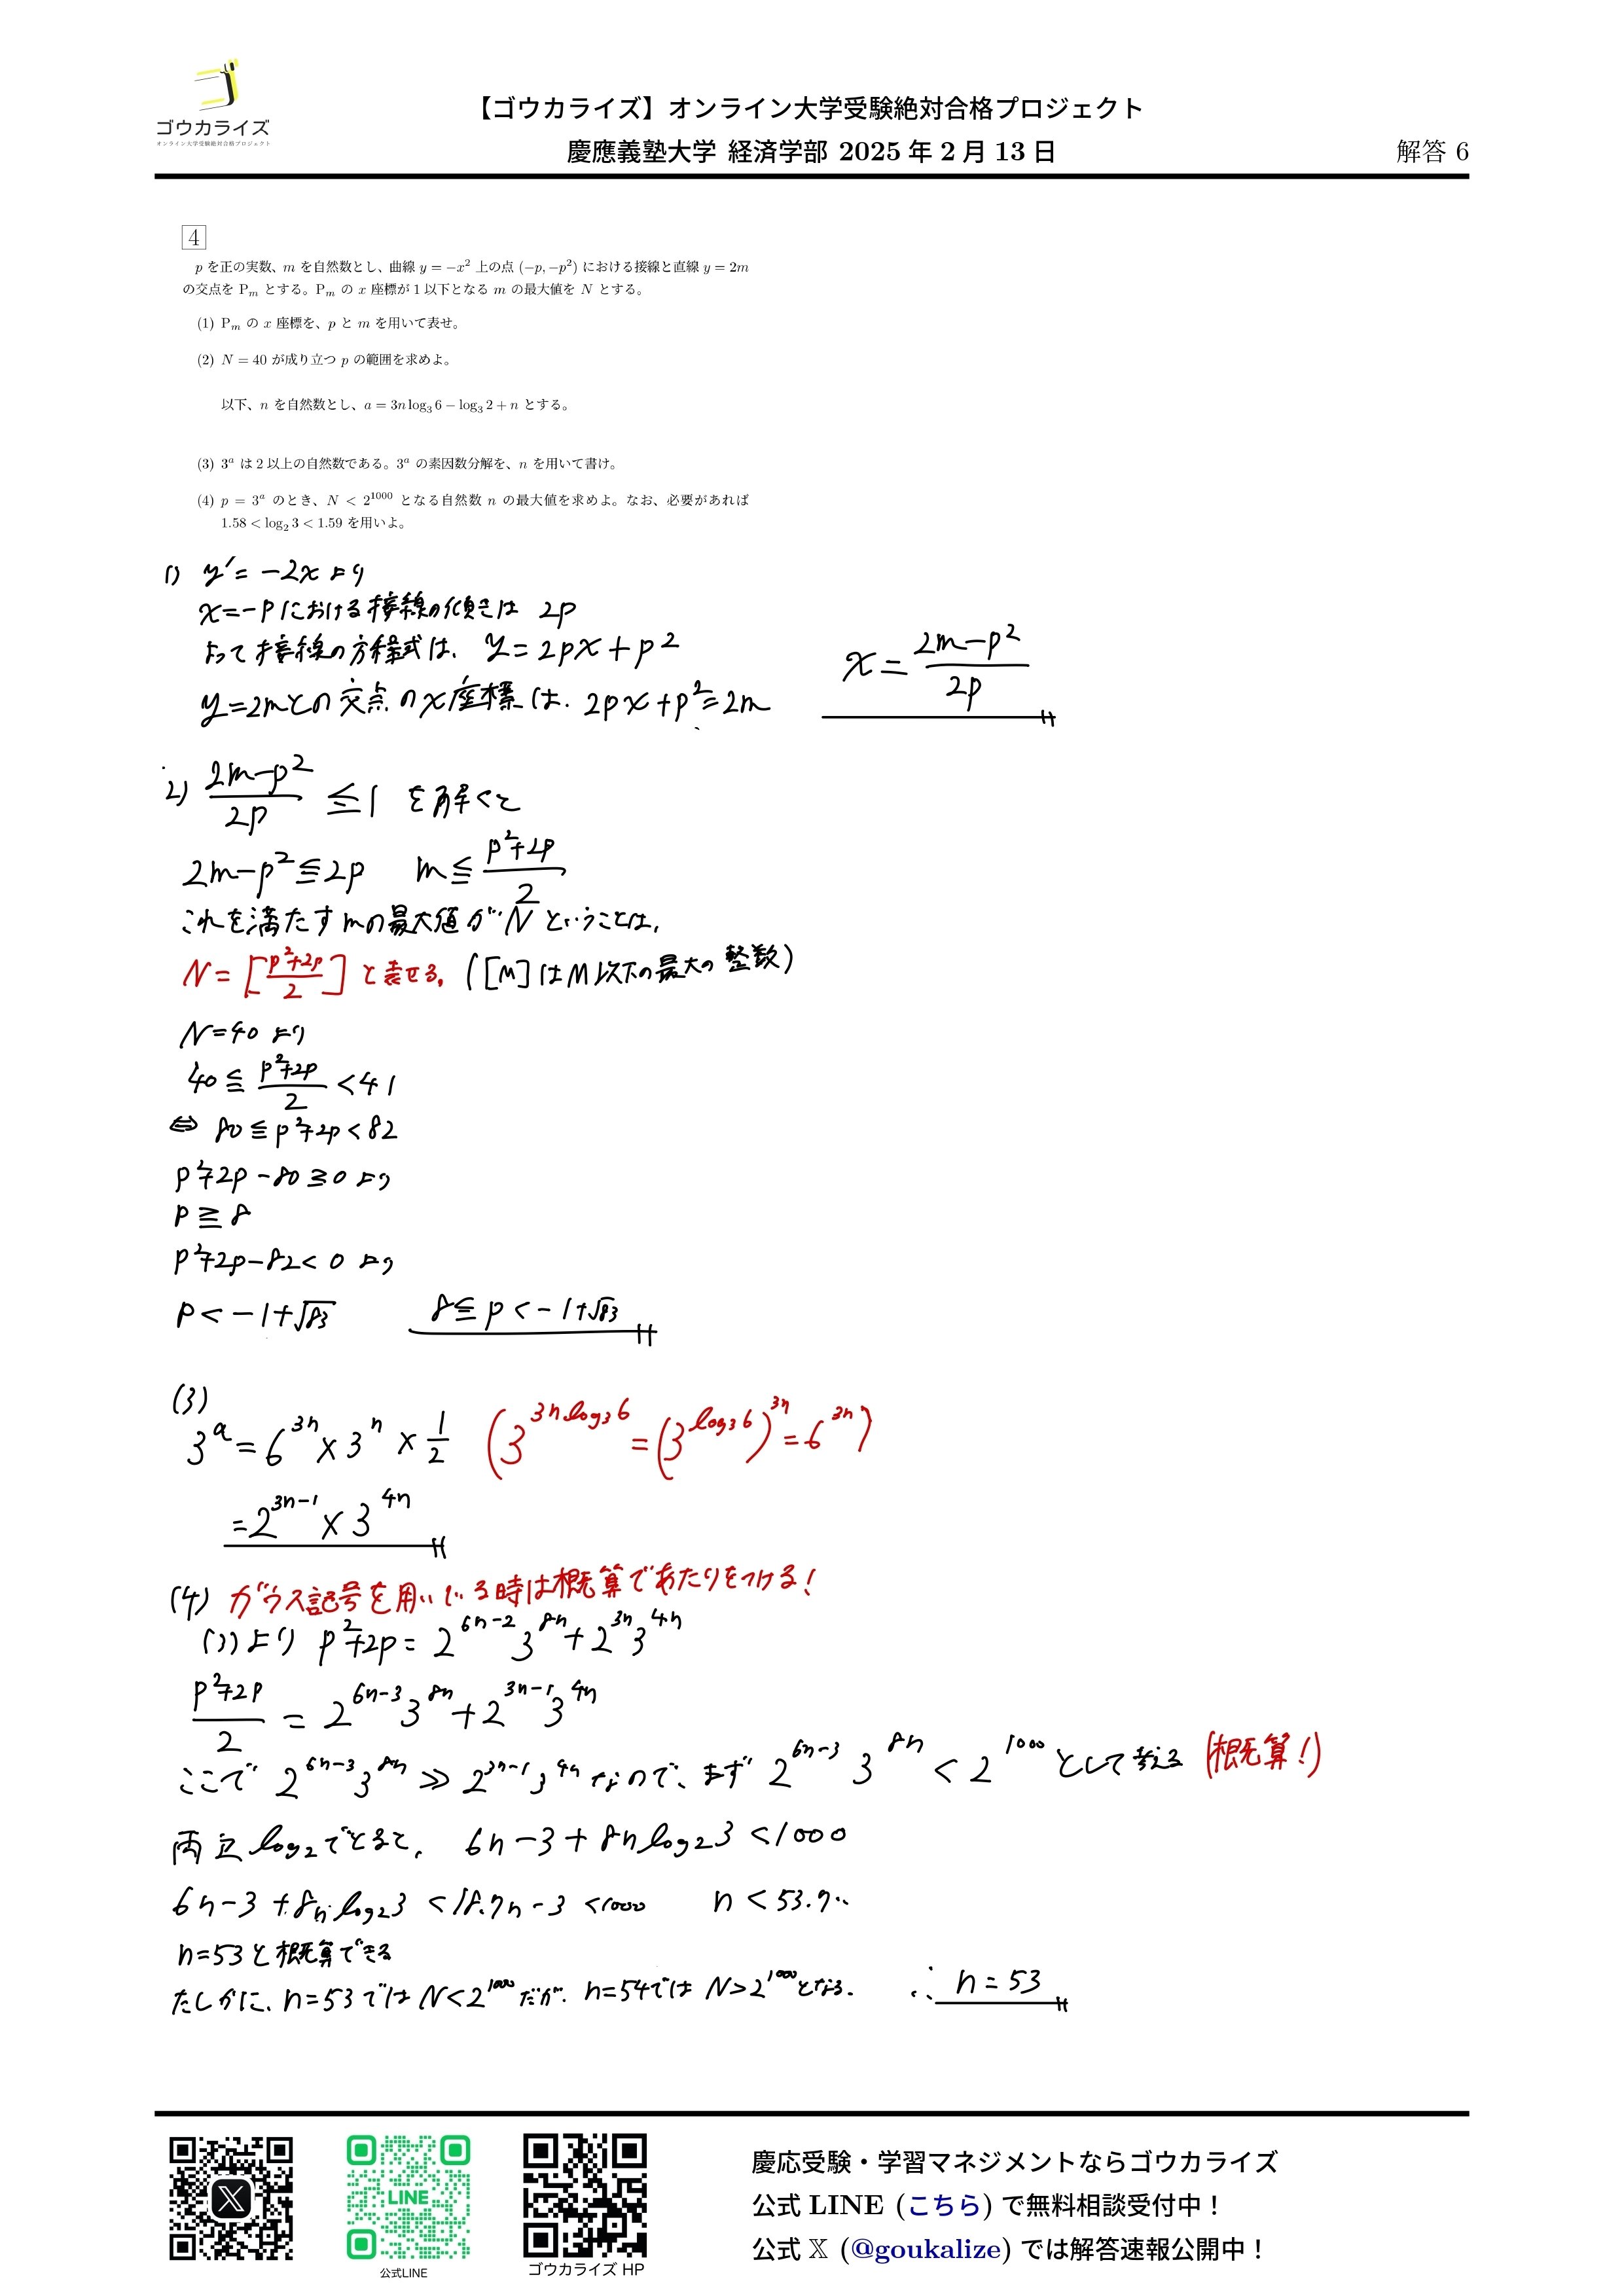 ゴウカライズ
オンライン大学受験絶対合格プロジェクト
【ゴウカライズ】オンライン大学受験絶対合格プロジェクト
慶應義塾大学 経済学部 2025 年 2 月 13 日
解答 6
4
p を正の実数、m を自然数とし、曲線 y = −x² 上の点 (−p, −p²) における接線と直線 y = 2m
の交点を Pₘ とする。Pₘ の x 座標が 1 以下となる m の最大値を N とする。
(1) Pₘ の x 座標を、p と m を用いて表せ。
(2) N = 40 が成り立つ p の範囲を求めよ。
以下、n を自然数とし、a = 3n log₃ 6 − log₃ 2 + n とする。
(3) 3ᵃ は 2 以上の自然数である。3ᵃ の素因数分解を、n を用いて書け。
(4) p = 3ᵃ のとき、N < 2¹⁰⁰⁰ となる自然数 n の最大値を求めよ。なお、必要があれば
1.58 < log₂ 3 < 1.59 を用いよ。
1) y′ = −2x より
x = −p における接線の傾きは 2p
よって接線の方程式は、 y = 2px + p²
y = 2m との交点の x 座標は、 2px + p² = 2m x = (2m − p²)/2p
2) (2m − p²)/2p ≦ 1 を解くと
2m − p² ≦ 2p m ≦ (p² + 2p)/2
これを満たす m の最大値が N ということは、
N = [(p² + 2p)/2] と表せる。([M] は M 以下の最大の整数)
N = 40 より
40 ≦ (p² + 2p)/2 < 41
⇔ 80 ≦ p² + 2p < 82
p² + 2p − 80 ≧ 0 より
p ≧ 8
p² + 2p − 82 < 0 より
p < −1 + √83 8 ≦ p < −1 + √83
(3)
3^a = 6^{3n} × 3^n × 1/2 (3^{3n log₃ 6} = (3^{log₃ 6})^{3n} = 6^{3n})
= 2^{3n−1} × 3^{4n}
(4) ガウス記号を用いている時は概算であたりをつける!
(3)より p² + 2p = 2^{6n−2} 3^{8n} + 2^{3n} 3^{4n}
(p² + 2p)/2 = 2^{6n−3} 3^{8n} + 2^{3n−1} 3^{4n}
ここで 2^{6n−3} 3^{8n} ≫ 2^{3n−1} 3^{4n} なので、まず 2^{6n−3} 3^{8n} < 2^{1000} として考える (概算!)
両辺 log₂ でとると、 6n − 3 + 8n log₂ 3 < 1000
6n − 3 + 8n log₂ 3 < 18.7n − 3 < 1000 n < 53.7‥
n = 53 と概算できる
たしかに、n = 53 では N < 2^{1000} だが、n = 54 では N > 2^{1000} となる. ∴ n = 53
LINE
公式LINE
ゴウカライズ HP
慶応受験・学習マネジメントならゴウカライズ
公式 LINE (こちら) で無料相談受付中!
公式 𝕏 (@goukalize) では解答速報公開中!